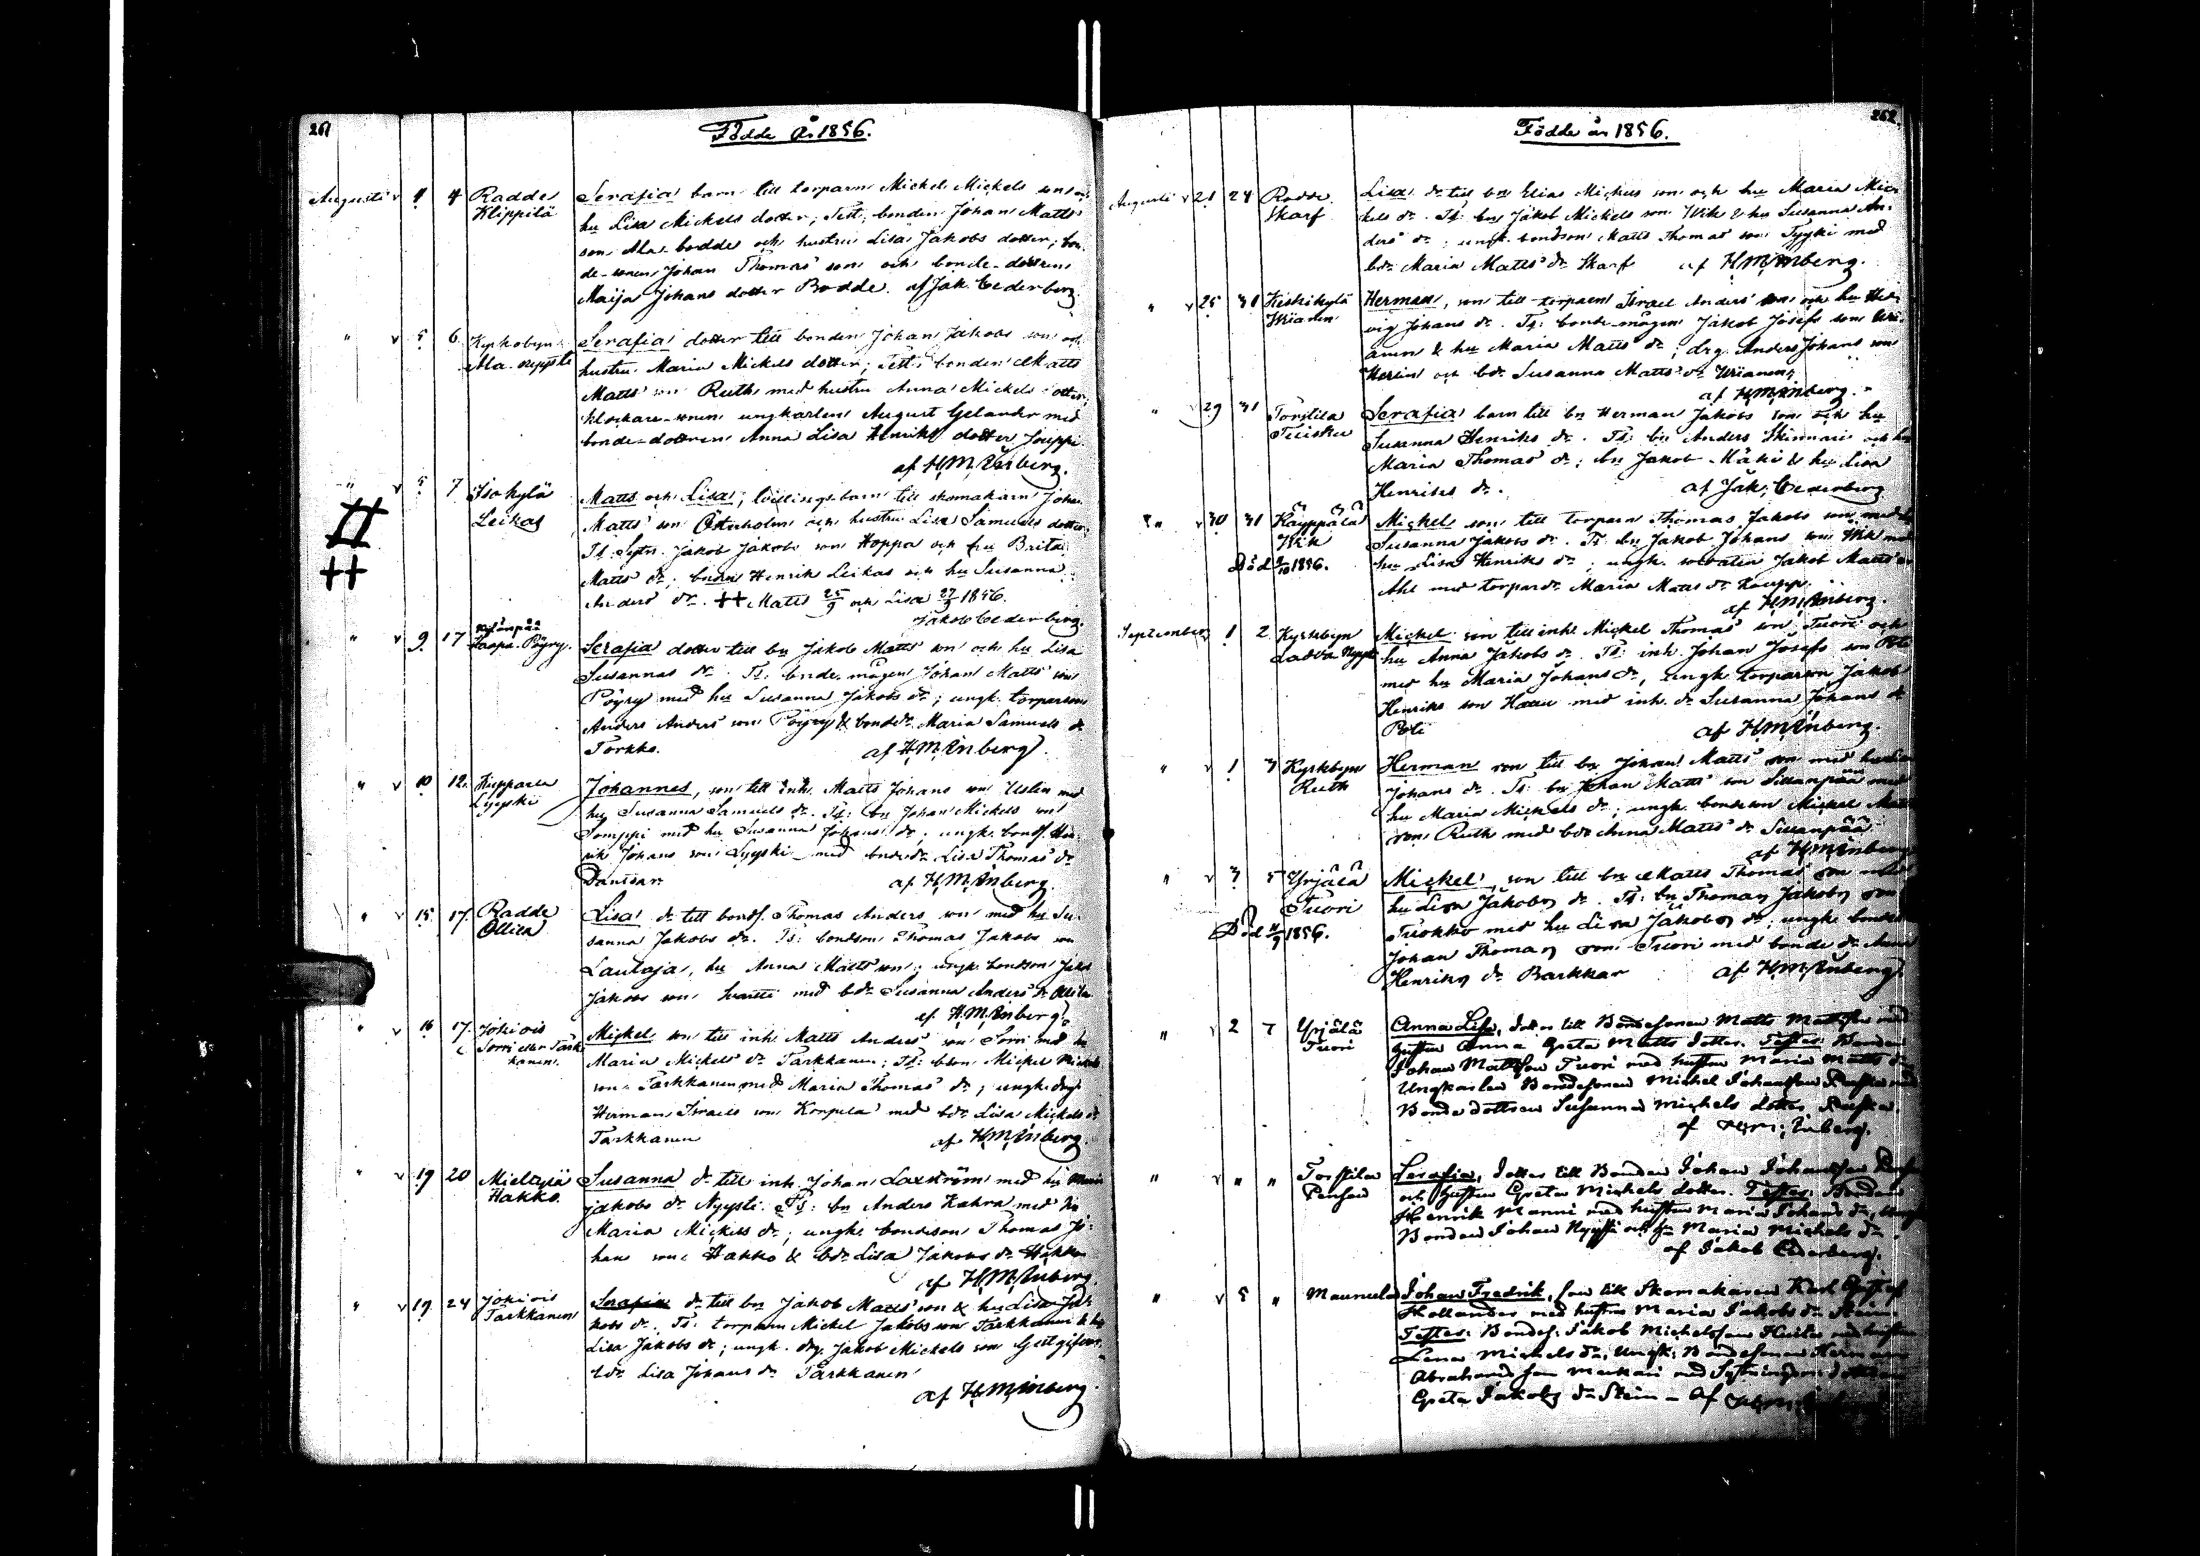 261
Födde år 1856.
Augusti v 4 4 Radde Klippilä
Serafia barn till torparn Mickel Mickels son och
hu Lisa Mickels dotter; Test: bonden Johan Matts
son Ala-bodde och hustru Lisa Jakobs dotter; bon-
de-sonen Johan Thomas son och bonde-dottren
Maija Johans dotter Bodde. af Jak. Cederberg.
" v 5 6 Kyrkobyn Ala-nyysti
Serafia dotter till bonden Johan Jakobs son och
hustru Maria Mickels dotter; Test: bonden Matts
Matts son Ruth med hustru Anna Mickels dotter;
klockare-sonen ungkarlen August Gelander med
bonde-dottren Anna Lisa Henriks dotter Jouppi
af H.M. Enberg.
" v 5 7 Isokylä Leikas
Matts och Lisa; tvillingsbarn till skomakarn Johan
Matts son Österholm och hustru Lisa Samuels dotter;
Ts: Sytn. Jakob Jakobs son Hoppa och hu Brita
Matts dr; bnden Henrik Leikas och hu Susanna
Anders dr. ++ Matts 25/9 och Lisa 27/9 1856.
Jakob Cederberg.
" v 9 17 Pöyry.
Serafia dotter till bn Jakob Matts son och hu Lisa
Susannas dr. Ts: bonde-mågen Johan Matts son
Pöyry med hu Susanna Jakobs dr; ungk. torparson
Anders Anders son Pöyry & bondedr Maria Samuels dr
Torkko. af H.M. Enberg.
" v 10 12 Lyyski
Johannes, son till inh. Matts Johans son Uslin med
hu Susanna Samuels dr. Ts: bn Johan Mickels son
Somppi med hu Susanna Johans dr; ungk. bondf. Hen-
rik Johans son Lyyski med bonded: Lisa Thomas dr
af H.M. Enberg.
" v 15 17. Radde Ollila
Lisa dr till bondf. Thomas Anders son med hu Su-
sanna Jakobs dr. Ts: bondson Thomas Jakobs son
Lautaja, hu Anna Matts; ungk. bondson Jakob
Jakobs son Svartti med bdr Susanna Anders dr Ollila
af H.M. Enberg.
" v 16 17. Jokiois Sorri eller Tarkkanen.
Mickel son till inh. Matts Anders son Sorri med hu
Maria Mickels dr Tarkkanen; Ts: Mickel Mickels
son Tarkkanen med Maria Thomas dr; ungk. drg.
Herman Israels son Korpela med bdr Lisa Mickels dr
Tarkkanen af H.M. Enberg.
" v 19 20 Mieltyä Hakko.
Susanna dr till inh. Johan Laxström med hu Maria
Jakobs dr Nyysti. Ts: bn Anders Kahra med hu
Maria Mickels dr; ungk. bondeson Thomas Jo-
hans son Hakko & bdr Lisa Jakobs dr Hakko
af H.M. Enberg.
" v 19 24 Jokiois Tarkkanen
Serafia dr till bn Jakob Matts son & hu Lisa Ja-
kobs dr. Ts: torparn Mickel Jakobs son Tarkkanen & hu
Lisa Jakobs dr; ungk. drg. Jakob Mickels son
bdr Lisa Johans dr Tarkkanen
af H.M. Enberg.
262
Födde år 1856.
Augusti v 21 24 Radde Skarf
Lisa dr till bn Elias Mickels son och hu Maria Mic-
kels dr. Ts: bn Jakob Mickels son Wik & hu Susanna An-
ders dr; ungk. bondson Matts Thomas son Tyyki med
bdr Maria Matts dr Skarf af H.M. Enberg.
" v 25 31 Keskikylä Wrianen
Herman, son till torparn Israel Anders son och hu Hed-
vig Johans dr. Ts: bonde-mågen Jakob Josefs son Wri-
anen & hu Maria Matts dr; drg. Anders Johans son
Herlin och bdr Susanna Matts dr Wrianen
af H.M. Enberg.
" v 29 31 Torstila Tuisku
Serafia barn till bn Herman Jakobs son och hu
Susanna Henriks dr. Ts: bn Anders Skinnari och hu
Maria Thomas dr; bn Jakob Mäki & hu Lisa
Henriks dr. af Jak. Cederberg
" v 30 31 Käyppälä Wik
Död 3/10 1856.
Mickel son till torparn Thomas Jakobs son med hu
Susanna Jakobs dr. Ts: bn Jakob Johans son Wik med
hu Lisa Henriks dr; ungk. Jakob Matts son
Ahl med torpardr Maria Matts dr Kauppi.
af H.M. Enberg.
September v 1 2 Kyrkbyn Ladva Nyysti
Mickel son till inh. Mickel Thomas son Tuori och
hu Anna Jakobs dr. Ts: inh. Johan Josefs son Poti
med hu Maria Johans dr, ungk. torparson Jakob
Henriks son Hattu med inh. dr Susanna Johans dr
Poti af H.M. Enberg.
" v 1 3 Kyrkbyn Ruth
Herman son till bn Johan Matts son med
Johans dr. Ts: bn Johan Matts son Siuanpää med
hu Maria Mickels dr; ungk. bondeson Mickel Matts
son Ruth med bdr Anna Matts dr Siuanpää
af H.M. Enberg
" v 3 5 Yrjälä Tuori
Död 11/9 1856.
Mickel, son till bn Matts Thomas son med
hu Lisa Jakobs dr. Ts: bn Thomas Jakobs son
Tuokko med hu Lisa Jakobs dr; ungk. bondes
Johan Thomas son Tuori med bonde dr Anna
Henriks dr Barkkar af H.M. Enberg.
" v 2 7 Yrjälä Tuori
Anna Lisa, dotter till Bondesonen Matts Mattsson med
hustru Anna Greta Matts dotter. Testes: Bonden
Johan Mattsson Tuori med hustru Maria Matts dr
Ungkarlen Bondesonen Mickel Johansson med
Bonde dottren Susanna Mickels dotter
af H.M. Enberg.
" v " " Torstila Penfar
Serafia, dotter till Bonden Johan Johansson
och hustru Greta Mickels dotter. Testes: Bonden
Henrik Manni med hustru Maria Johans dr, ungk
Bonden Johan Nyysti och hu Maria Mickels dr.
af Jakob Cederberg.
" v 5 " Maunula
Johan Fredrik, son till Skomakaren Karl Gustaf
Hollander med hustru Maria Jakobs dr Stein.
Testes: Bondes: Jakob Mickelsson med hustru
Lena Mickels dr, Ungk: Bondesonen Herman
Abrahams son Markkari med
Greta Jakobs dr Stein - af H.M.